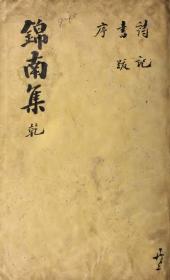 詩 記
書 跋
序
錦南集 乾